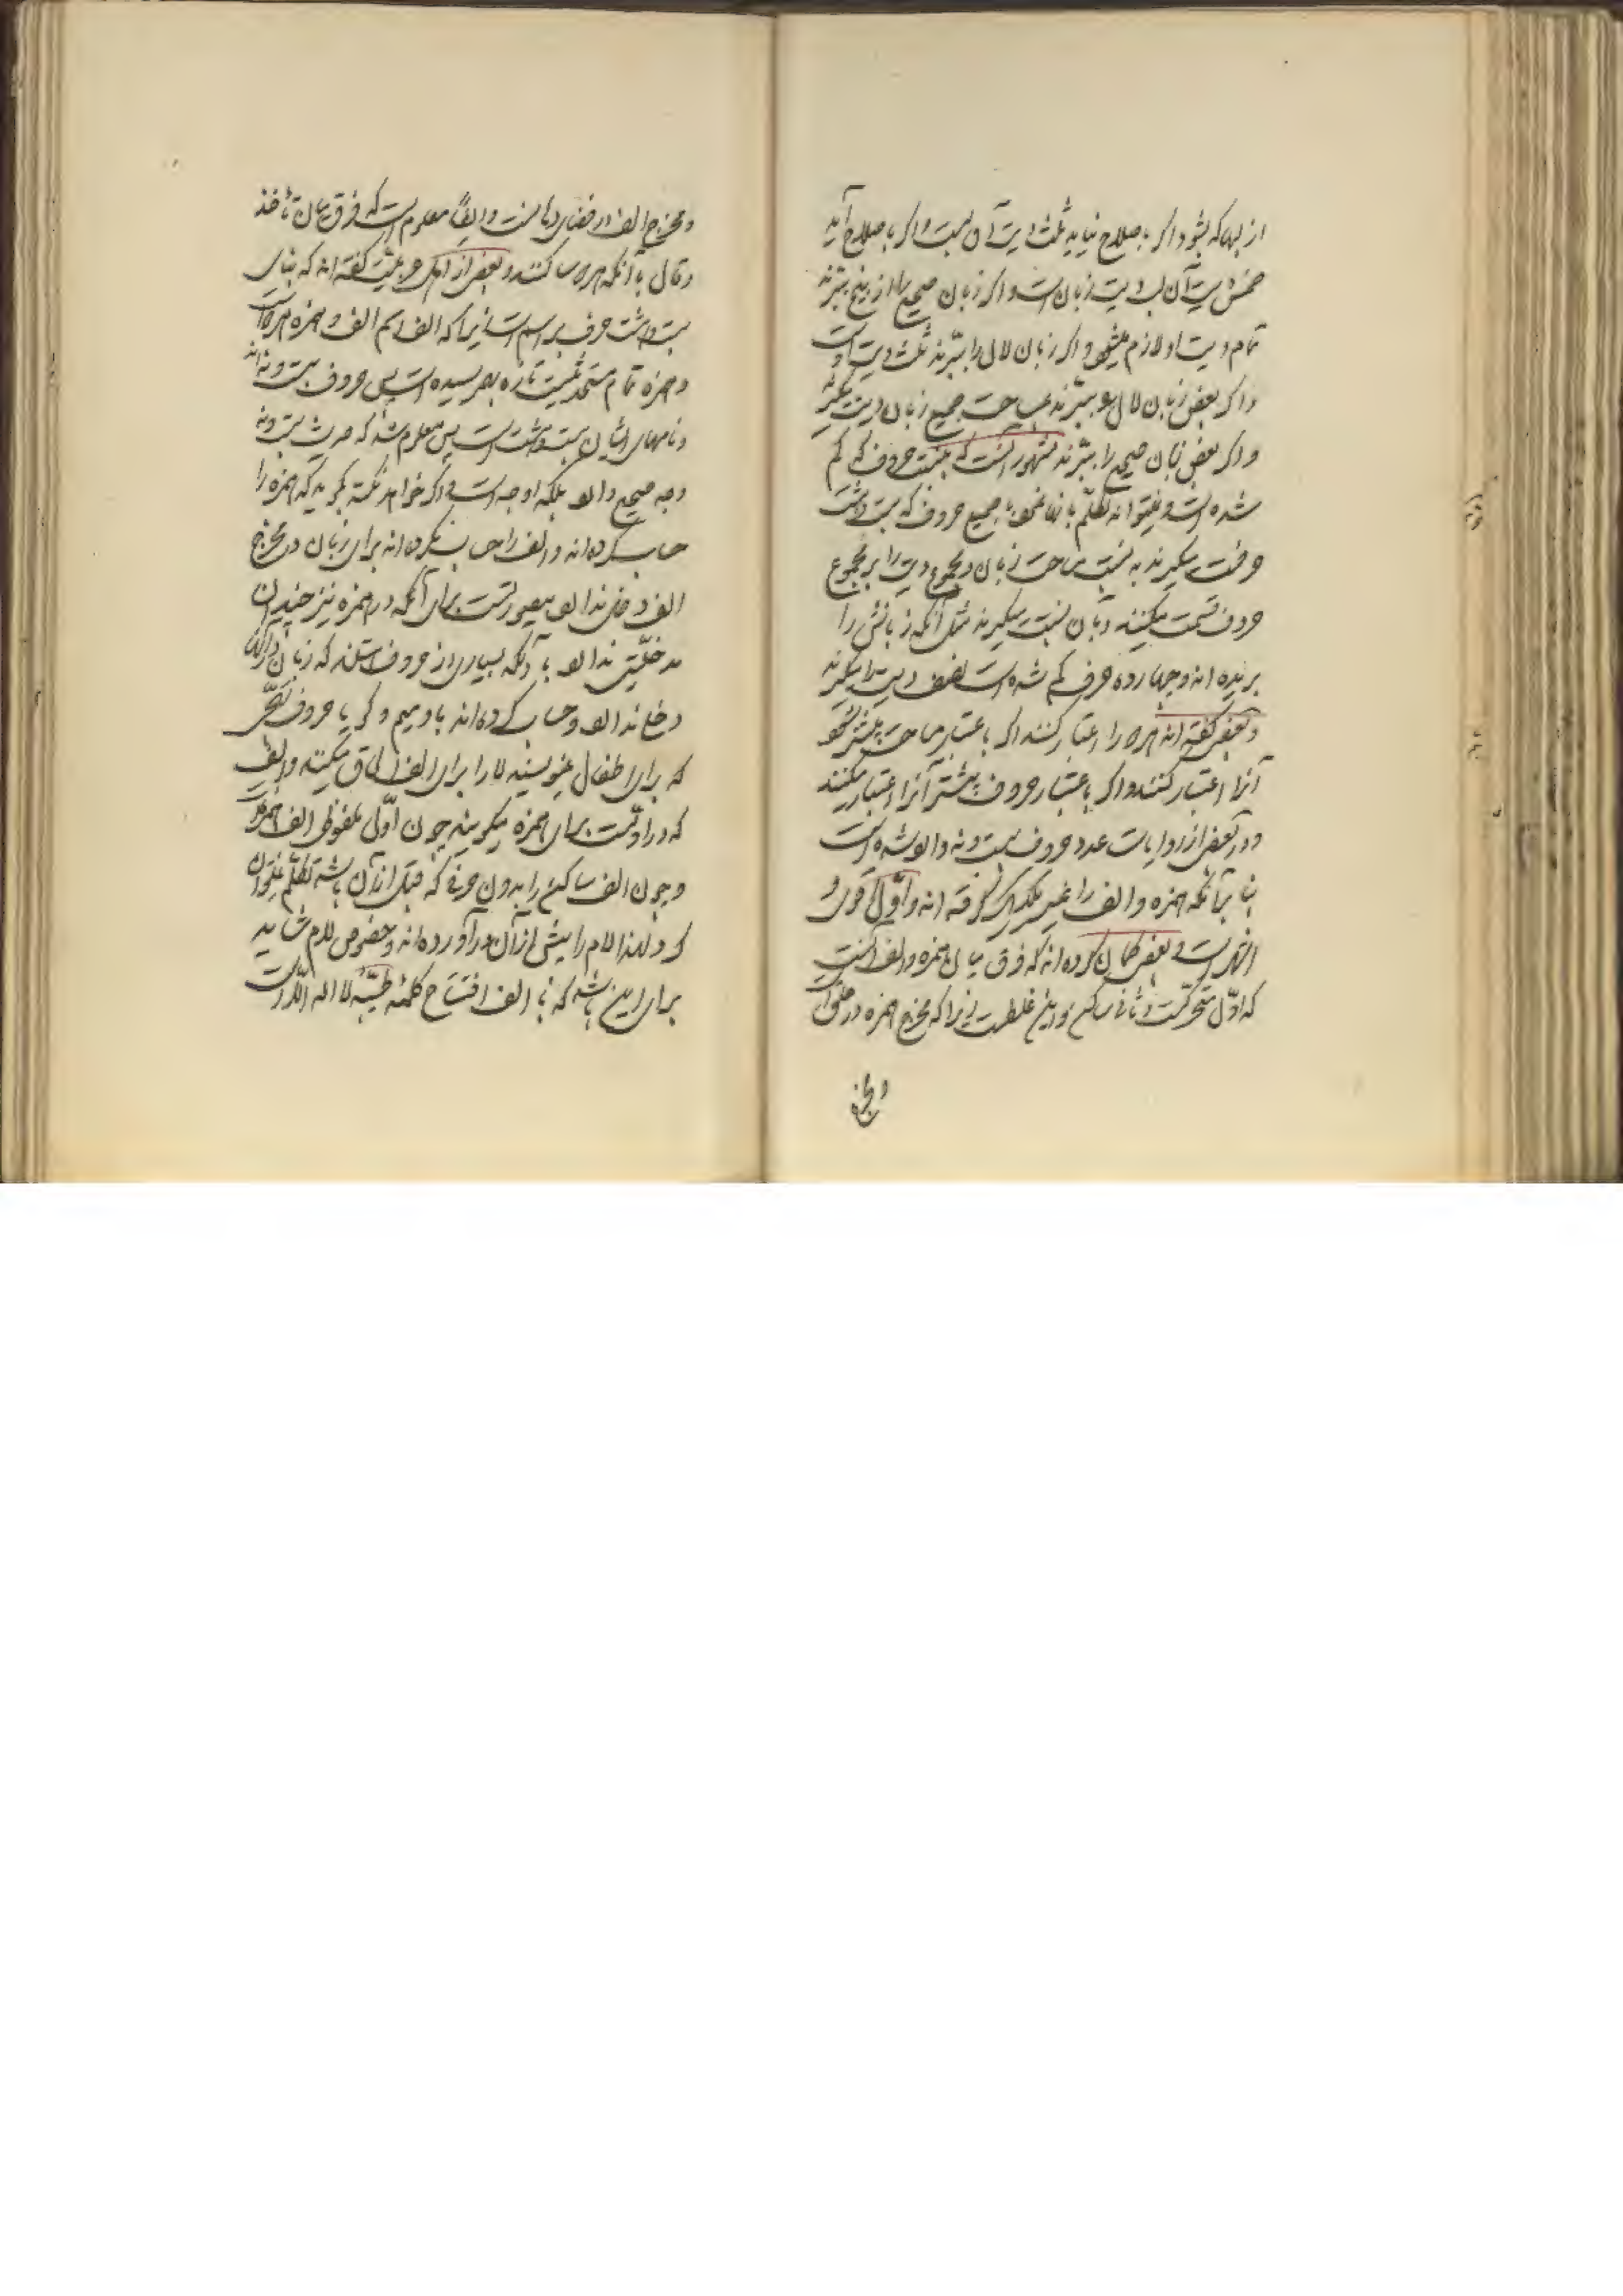 از لبها که بشود اگر باصلاح نیاید ثلث دیت آن لبست و اگر باصلاح آید
خمس دیت آن لب دیت زبان است و اگر زبان صحیح را از بیخ ببرند
تمام دیت او لازم میشود و اگر زبان لال را ببرند ثلث دیت است
و اگر بعض زبان لال ببرند بمساحت جمیع زبان دیت میگیرند
و اگر بعض زبان صحیح را ببرند مشهور آنست که بنسبت حروف که کم
شده است و نمیتواند تکلم بآنها نمود با جمیع حروف که بیست و هشت
حرفست میگیرند نه بنسبت مساحت زبان و مجموع دیت را بر مجموع
حروف قسمت میکنند و بآن نسبت میگیرند مثل آنکه زبانش را
بریده اند و چهارده حرف کم شده است نصف دیت را میگیرند
و بعضی گفته اند هر دو را اعتبار کنند اگر باعتبار مساحت بیشتر شود
آنرا اعتبار کنند و اگر باعتبار حروف بیشتر آنرا اعتبار میکنند
و در بعضی از روایات عدد حروف بیست و نه وارد شده است
بنا بر آنکه همزه و الف را غیر یکدیگر گرفته اند و اول اقوی و
اشهر است و بعضی گمان کرده اند که فرق میان همزه و الف آنست
که اول متحرکست و ثانی ساکن و این غلطست زیرا که مخرج همزه در حلق است
و مخرج
و مخرج الف در فضای دهانست و ایضا معلوم است که فرق میان تأخذ
و قال با آنکه هر دو ساکنند و بعضی از اهل عربیت گفته اند که بنای
بیست و هشت حرف بر اسم است زیرا که الف اسم الف و همزه هر دو است
و همزه نام مستحدثیست تازه بهم رسیده است پس حروف بیست و نه اند
و نامهای ایشان بیست و هشت است پس معلوم شد که حدیث بیست و نه
وجه صحیح دارد بلکه اوجه است و اگر خواهد نکته بگوید که همزه را
حساب کرده اند و الف را حساب نکرده اند برای زبان در مخرج
الف دخلی ندارد بیصورتست برای آنکه در همزه نیز چندان
مدخلیتی ندارد با آنکه بسیاری از حروف هستند که زبان در آن
دخل ندارد و حساب کرده اند با و میم و گویا حروف تهجی
که برای اطفال مینویسند لا را برای الف الحاق میکنند و الف
که در اولست برای همزه میگویند چون اول ملفوظ الف همزه است
و چون الف ساکن را بدون حرفی که قبل از آن باشد تکلم نمیتوان
کرد لهذا لام را پیش از آن در آورده اند و خصوص لام شاید
برای این باشد که با الف افتتاح کلمه طیبه لا اله الا الله است